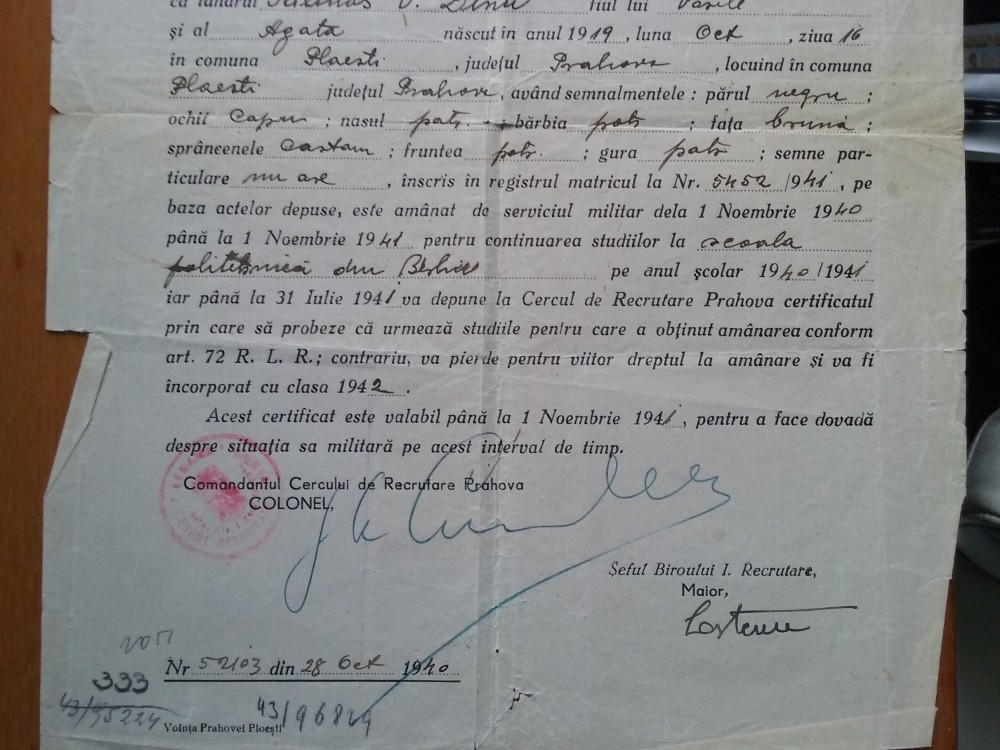 că tânărul V. Dinu fiul lui Vasile
și al Agata născut în anul 1919, luna Oct, ziua 16
în comuna Ploesti, județul Prahova, locuind în comuna
Ploesti județul Prahova, având semnalmentele: părul negru;
ochii Caprui; nasul potr.; bărbia potr; fața bruna;
sprâncenele Castani; fruntea potr.; gura potr; semne par-
ticulare nu are, înscris în registrul matricul la Nr. 5452/941, pe
baza actelor depuse, este amânat de serviciul militar dela 1 Noembrie 1940
până la 1 Noembrie 1941 pentru continuarea studiilor la scoala
politehnică din pe anul școlar 1940/1941
iar până la 31 Iulie 1941 va depune la Cercul de Recrutare Prahova certificatul
prin care să probeze că urmează studiile pentru care a obținut amânarea conform
art. 72 R. L. R.; contrariu, va pierde pentru viitor dreptul la amânare și va fi
încorporat cu clasa 1942.
Acest certificat este valabil până la 1 Noembrie 1941, pentru a face dovadă
despre situația sa militară pe acest interval de timp.
Comandantul Cercului de Recrutare Prahova
COLONEL,
Șeful Biroului I. Recrutare,
Maior,
Nr 52103 din 28 Oct 1940
333
43/95224
43/96829
Voința Prahovei Ploești